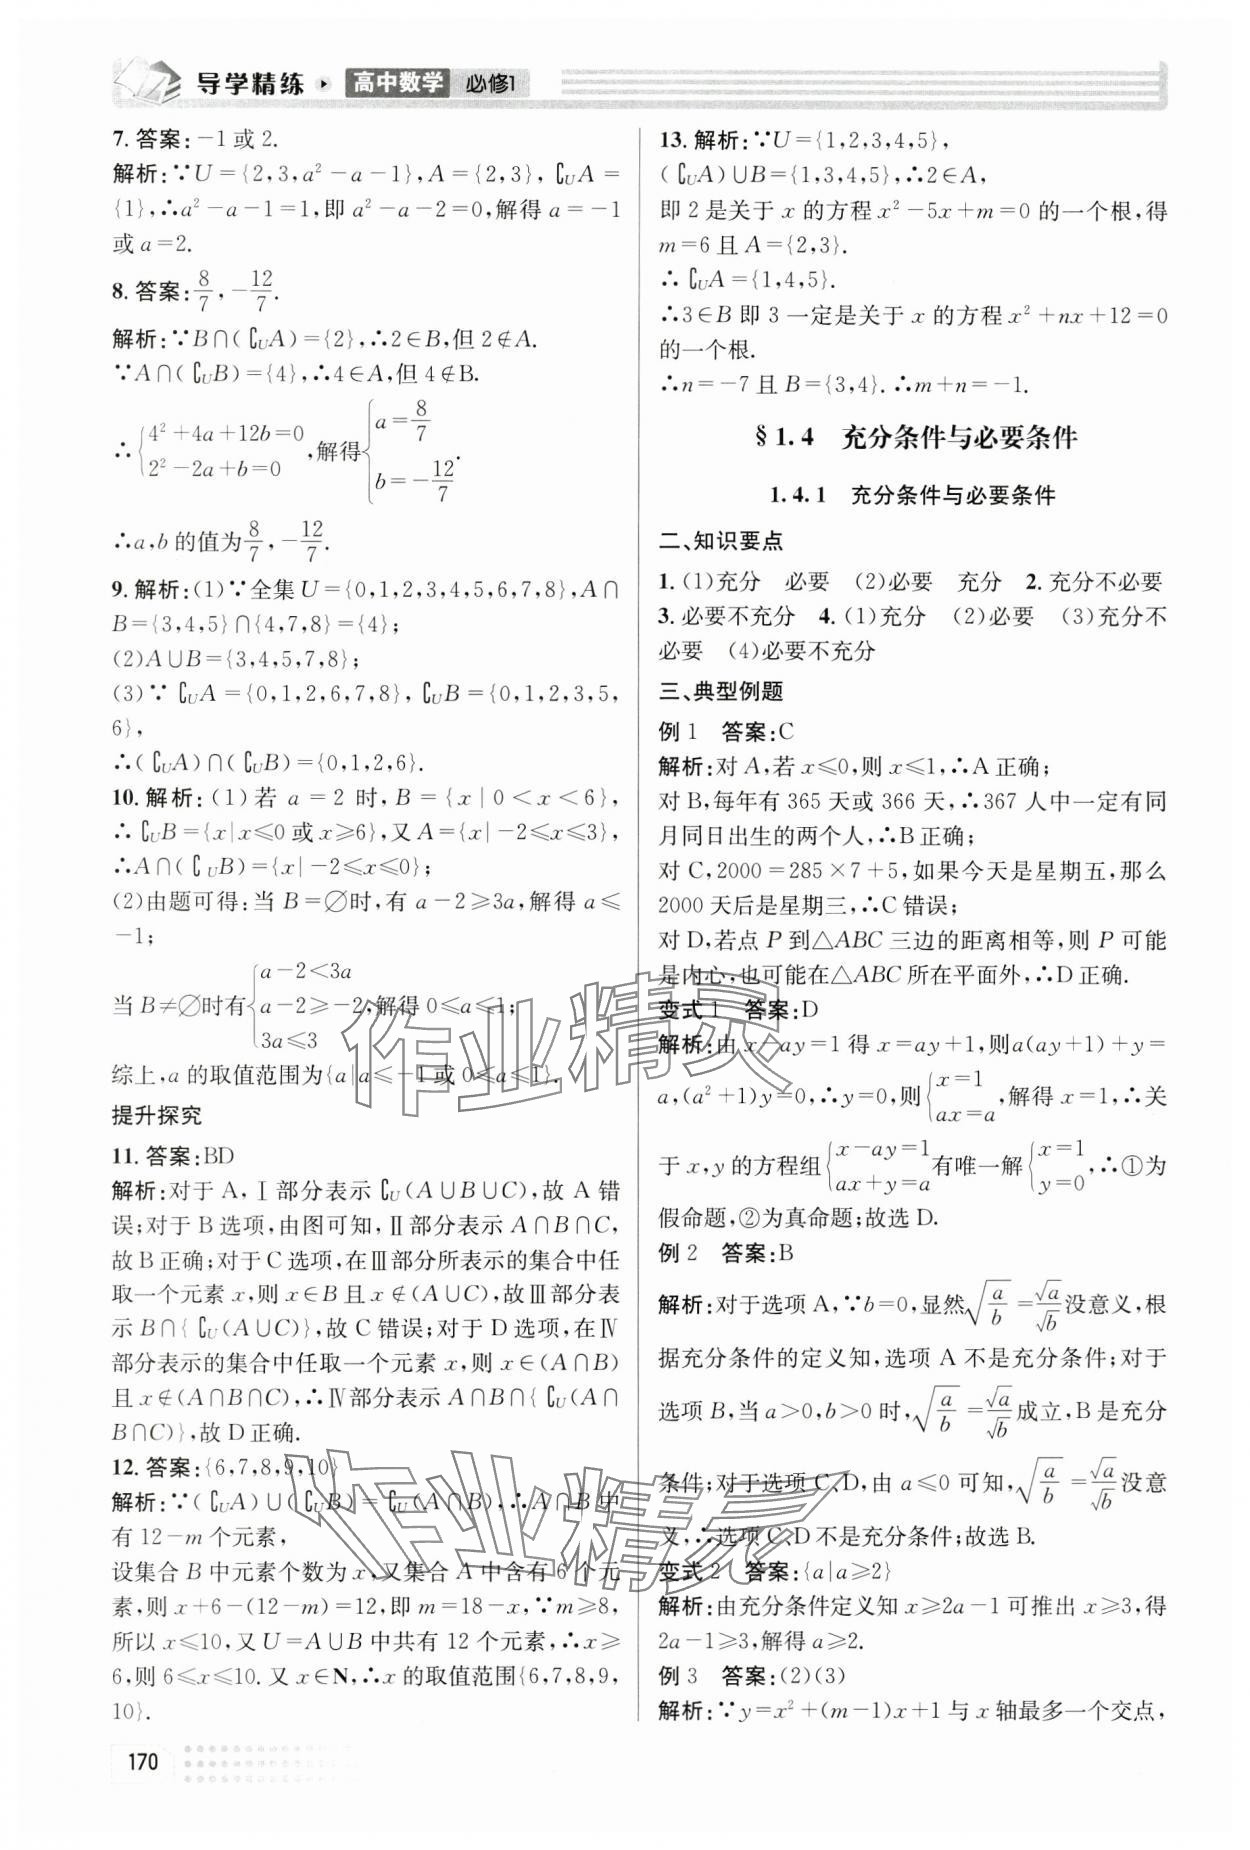 导学精练 高中数学 必修1
7.答案:-1或2.
解析:∵U={2,3,a²-a-1},A={2,3},∁UA=
{1},∴a²-a-1=1,即a²-a-2=0,解得a=-1
或a=2.
8.答案:8/7,-12/7.
解析:∵B∩(∁UA)={2},∴2∈B,但2∉A.
∵A∩(∁UB)={4},∴4∈A,但4∉B.
∴{4²+4a+12b=0 2²-2a+b=0,解得{a=8/7 b=-12/7.
∴a,b的值为8/7,-12/7.
9.解析:(1)∵全集U={0,1,2,3,4,5,6,7,8},A∩
B={3,4,5}∩{4,7,8}={4};
(2)A∪B={3,4,5,7,8};
(3)∵∁UA={0,1,2,6,7,8},∁UB={0,1,2,3,5,
6},
∴(∁UA)∩(∁UB)={0,1,2,6}.
10.解析:(1)若a=2时,B={x|0<x<6},
∴∁UB={x|x≤0或x≥6},又A={x|-2≤x≤3},
∴A∩(∁UB)={x|-2≤x≤0};
(2)由题可得:当B=∅时,有a-2≥3a,解得a≤
-1;
当B≠∅时有{a-2<3a a-2≥-2 3a≤3,解得0≤a≤1;
综上,a的取值范围为{a|a≤-1或0≤a≤1}.
提升探究
11.答案:BD
解析:对于A,Ⅰ部分表示∁U(A∪B∪C),故A错
误;对于B选项,由图可知,Ⅱ部分表示A∩B∩C,
故B正确;对于C选项,在Ⅲ部分所表示的集合中任
取一个元素x,则x∈B且x∉(A∪C),故Ⅲ部分表
示B∩{∁U(A∪C)},故C错误;对于D选项,在Ⅳ
部分表示的集合中任取一个元素x,则x∈(A∩B)
且x∉(A∩B∩C),∴Ⅳ部分表示A∩B∩{∁U(A∩
B∩C)},故D正确.
12.答案:{6,7,8,9,10}
解析:∵(∁UA)∪(∁UB)=∁U(A∩B),∴A∩B中
有12-m个元素,
设集合B中元素个数为x,又集合A中含有6个元
素,则x+6-(12-m)=12,即m=18-x,∵m≥8,
所以x≤10,又U=A∪B中共有12个元素,∴x≥
6,则6≤x≤10.又x∈N,∴x的取值范围{6,7,8,9,
10}.
170
13.解析:∵U={1,2,3,4,5},
(∁UA)∪B={1,3,4,5},∴2∈A,
即2是关于x的方程x²-5x+m=0的一个根,得
m=6且A={2,3}.
∴∁UA={1,4,5}.
∴3∈B即3一定是关于x的方程x²+nx+12=0
的一个根.
∴n=-7且B={3,4}.∴m+n=-1.
§1.4 充分条件与必要条件
1.4.1 充分条件与必要条件
二、知识要点
1.(1)充分 必要 (2)必要 充分 2.充分不必要
3.必要不充分 4.(1)充分 (2)必要 (3)充分不
必要 (4)必要不充分
三、典型例题
例1 答案:C
解析:对A,若x≤0,则x≤1,∴A正确;
对B,每年有365天或366天,∴367人中一定有同
月同日出生的两个人,∴B正确;
对C,2000=285×7+5,如果今天是星期五,那么
2000天后是星期三,∴C错误;
对D,若点P到△ABC三边的距离相等,则P可能
是内心,也可能在△ABC所在平面外,∴D正确.
变式1 答案:D
解析:由x-ay=1得x=ay+1,则a(ay+1)+y=
a,(a²+1)y=0,∴y=0,则{x=1 ax=a,解得x=1,∴关
于x,y的方程组{x-ay=1 ax+y=a有唯一解{x=1 y=0,∴①为
假命题,②为真命题;故选D.
例2 答案:B
解析:对于选项A,∵b=0,显然√(a/b)=√a/√b没意义,根
据充分条件的定义知,选项A不是充分条件;对于
选项B,当a>0,b>0时,√(a/b)=√a/√b成立,B是充分
条件;对于选项C、D,由a≤0可知,√(a/b)=√a/√b没意
义,∴选项C、D不是充分条件;故选B.
变式2 答案:{a|a≥2}
解析:由充分条件定义知x≥2a-1可推出x≥3,得
2a-1≥3,解得a≥2.
例3 答案:(2)(3)
解析:∵y=x²+(m-1)x+1与x轴最多一个交点,
作业精灵
作业精灵